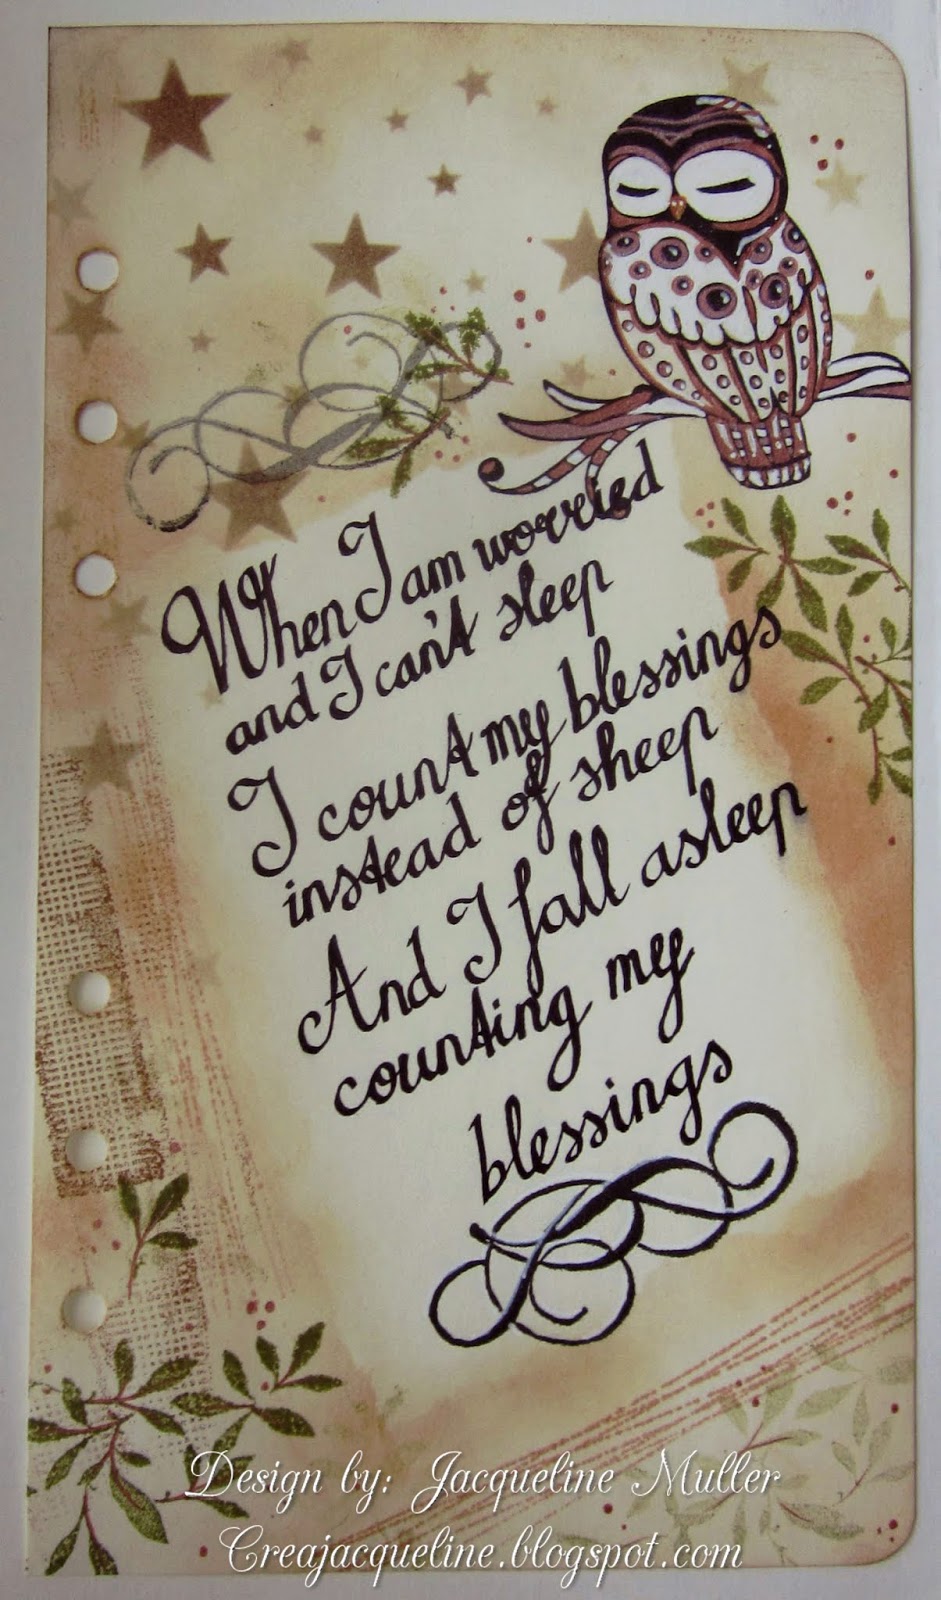 When I am worried
and I can't sleep
I count my blessings
instead of sheep
And I fall asleep
counting my
blessings
Design by: Jacqueline Muller
Creajacqueline.blogspot.com